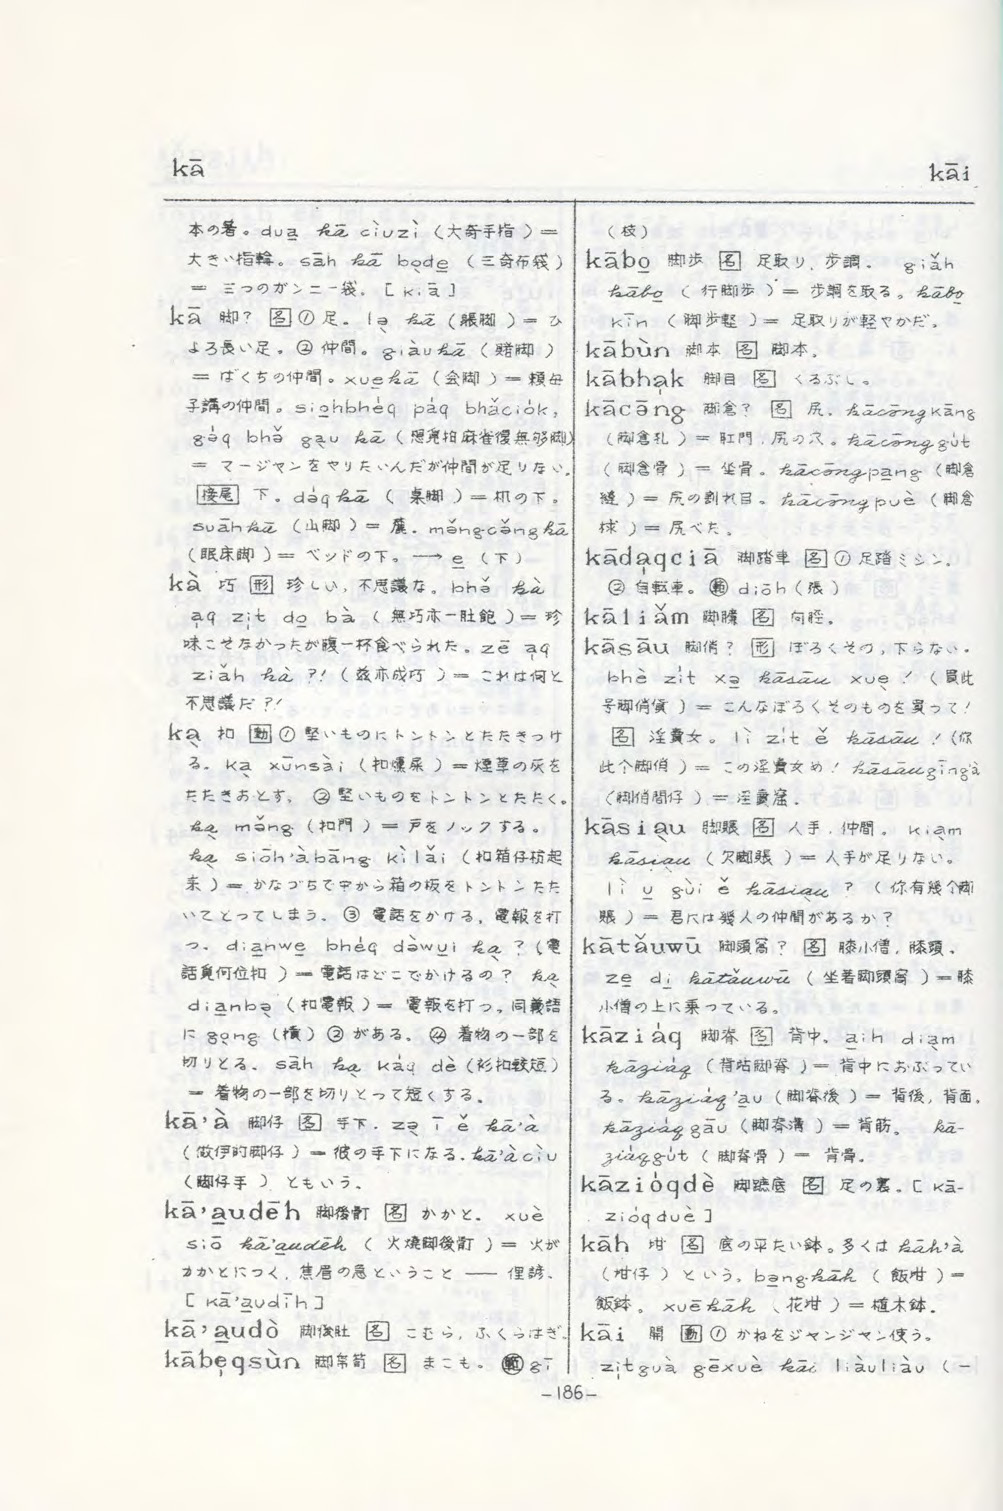 kā
kāi
本の箸。dua̱ kā ciuzì (大奇手指)=
大きい指輪。sāh kā bo̱de̱ (三奇布袋)
= 三つのガンニー袋。[kiā]
kā 脚? 名①足。lə̱ kā (脚)=ひ
ょろ長い足。②仲間。giàukā (賭脚)
= ばくちの仲間。xue̱kā (会脚)=頼母
子講の仲間。
= マージャンをやりたいんだが仲間が足りない。
接尾 下。dəqkā (桌脚)=机の下。
suāhkā (山脚)= 麓。mə̌ngcə̌ngkā
(眠床脚)= ベッドの下。→ e̱ (下)
kà 巧 形 珍しい,不思議な。bhə̌ kà
a̱q zi̍t do̱ bà (無巧亦一肚飽)=珍
味こそなかったが腹一杯食べられた。zē a̱q
ziǎh kà ?! (茲亦成巧)= これは何と
不思議だ?!
ka̱ 扣 動①堅いものにトントンとたたきつけ
る。ka̱ xūnsài (扣燻屎)=煙草の灰を
たたきおとす。②堅いものをトントンとたたく。
ka̱ mə̌ng (扣門)=戸をノックする。
ka̱ siōh'àbāng kìlǎi (扣箱仔枋起
来)= かなづちで中から箱の板をトントンたた
いてとってしまう。③電話をかける,電報を打
つ。dia̱nwe̱ bhéq dəwui ka̱ ? (電
話覓何位扣)= 電話はどこでかけるの? ka̱
dia̱nbə̱ (扣電報)= 電報を打つ。同義語
に go̱ng (摃)③がある。④着物の一部を
切りとる。sāh ka̱ káq dè (衫扣較短)
= 着物の一部を切りとって短くする。
kā'à 脚仔 名 手下。zə̱ ī ě kā'à
(做伊的脚仔)=彼の手下になる。kā'àciu
(脚仔手)ともいう。
kā'a̱udēh 脚後 名 かかと。xuè
siō kā'a̱udēh (火焼脚後)= 火が
かかとにつく,焦眉の急ということ — 俚諺。
[kā'a̱udīh]
kā'a̱udò 脚後肚 名 こむら,ふくらはぎ。
kābe̱qsùn 脚帛筍 名 まこも。範 gī
(枝)
kābo̱ 脚歩 名 足取り,歩調。giǎh
kābo̱ (行脚歩)= 歩調を取る。kābo̱
kīn (脚歩軽)= 足取りが軽やかだ。
kābùn 脚本 名 脚本。
kābha̍k 脚目 名 くるぶし。
kācəng 脚倉? 名 尻。kācəngkāng
(脚倉孔)= 肛門,尻の穴。kācənggút
(脚倉骨)= 坐骨。kācəngpa̱ng (脚倉
縫)= 尻の割れ目。kācəngpuè (脚倉
)= 尻べた。
kāda̍qciā 脚踏車 名①足踏ミシン。
②自転車。範 diōh (張)
kāliǎm 脚臁 名 向脛。
kāsāu 脚俏? 形 ぼろくその,下らない。
bhè zi̍t xə kāsāu xue̱ ! (買此
号脚俏貨)= こんなぼろくそのものを買って!
名 淫賣女。lì zi̍t ě kāsāu ! (你
此个脚俏)= この淫賣女め! kāsāugīng'à
(脚俏間仔)= 淫賣窟。
kāsiau 脚賬 名 人手,仲間。kiam
kāsiau (欠脚賬)= 人手が足りない。
lì u̱ gùi ě kāsiau ? (你有幾个脚
賬)= 君には幾人の仲間があるか?
kātǎuwū 脚頭窩? 名 膝小僧,膝頭。
ze̱ di̱ kātǎuwū (坐着脚頭窩)=膝
小僧の上に乗っている。
kāziáq 脚脊 名 背中。a̱ih diam
kāziáq (脚脊)=背中におぶってい
る。kāziáq'a̱u (脚脊後)= 背後,背面。
kāziáqgāu (脚脊溝)= 背筋。kā-
ziáqgút (脚脊骨)= 背骨。
kāzióqdè 脚蹠底 名 足の裏。[kā-
zióqduè]
kāh 坩 名 底の平たい鉢。多くは kāh'à
(坩仔)という。ba̱ng-kāh (飯坩)=
飯鉢。xuēkāh (花坩)= 植木鉢。
kāi 開 動①かねをジャンジャン使う。
zi̍tguà gēxuè kāi liàuliàu (一
-186-